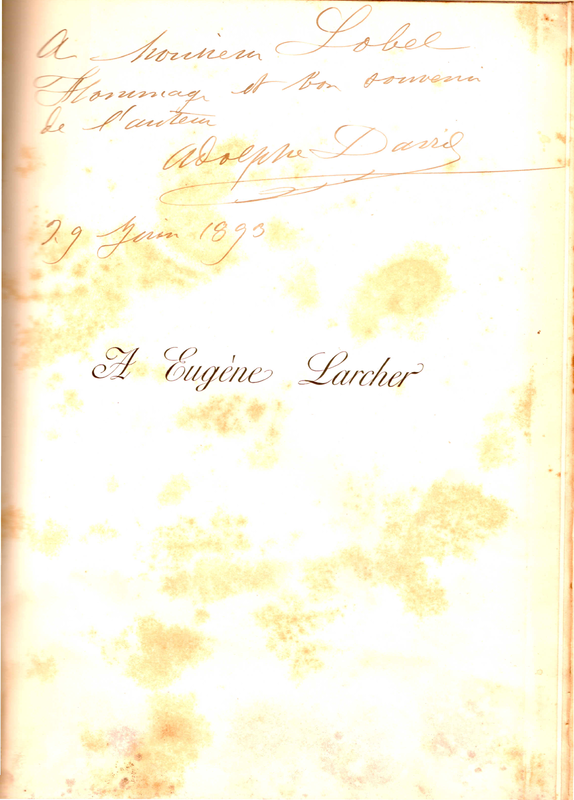 A Monsieur Lobel
Hommage et bon souvenir
de l'auteur
Adolphe David
29 Juin 1893
A Eugène Larcher